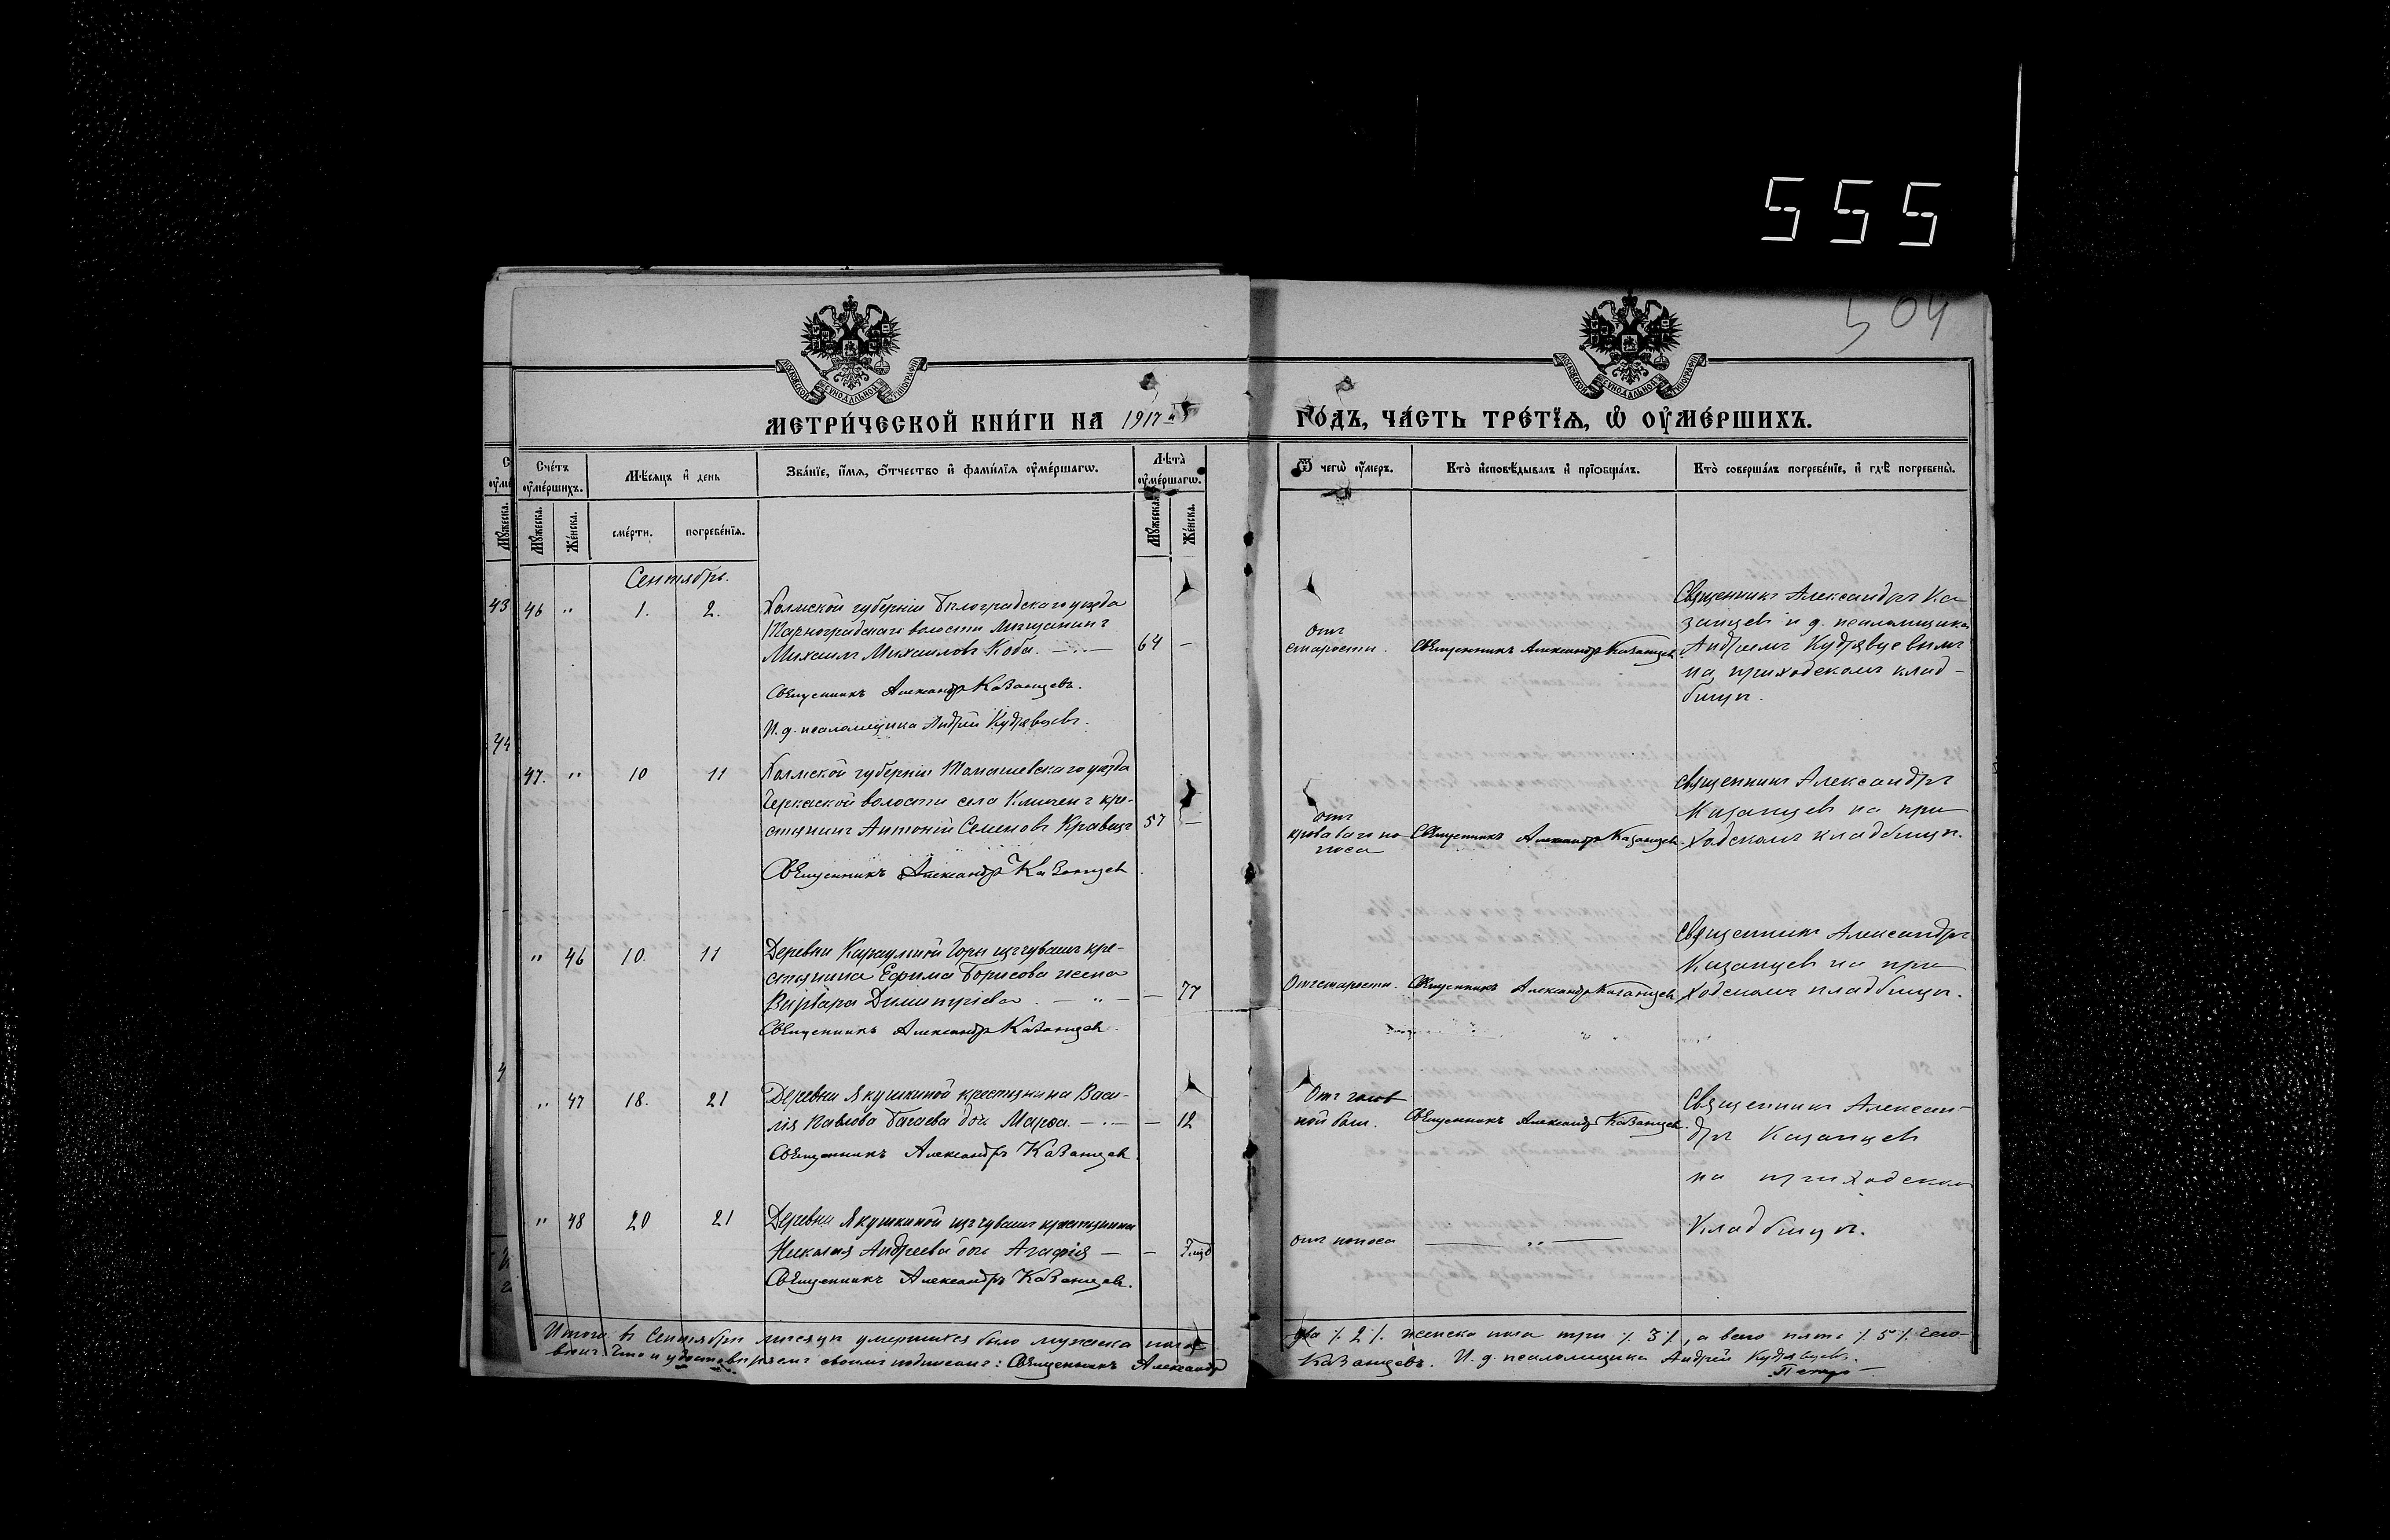 555
504
МЕТРИ́ЧЕСКОЙ КНИ́ГИ НА 1917 й
ГО́ДЪ, ЧА́СТЬ ТРЕ́ТЇѦ, Ѽ ОУ҆МЕ́РШИХЪ.
Сче́тъ оу҆ме́ршихъ.
Мѣ́сяцъ и҆ день
Зва́нїе, и҆́мя, ѻ҆́тчество и҆ фами́лїя оу҆ме́ршагѡ.
Лѣ́та оу҆ме́ршагѡ.
Ѿ чегѡ̀ оу҆́меръ.
Кто̀ и҆сповѣ́дывалъ и҆ прїѻбща́лъ.
Кто̀ соверша́лъ погребе́нїе, и҆ гдѣ̀ погребены̀.
Мꙋ́жеска.
Же́нска.
сме́рти.
погребе́нїѧ.
Мꙋ́жеска.
Же́нска.
Сентябрь.
46 " 1. 2. Холмской губерніи Бѣлградскаго уѣзда
Тарноградскаго волости мѣщанинъ
Михаилъ Михаиловъ Коба. 64 –
Священникъ Александръ Казанцевъ.
И. д. псаломщика Андрей Кудрявцевъ.
Отъ
старости.
Священникъ Александръ Казанцевъ
Священникъ Александръ Ка
занцевъ и д. псаломщика
Андреемъ Кудрявцевымъ
на приходскомъ клад-
бищѣ.
47. " 10 11 Холмской губерніи Томашевскаго уѣзда
Черкаской волости села кре-
стянинъ Антоній Семеновъ Кравецъ 57 –
Священникъ Александръ Казанцев
Отъ
кроваваго по
носа
Священникъ Александръ Казанцевъ.
Священникъ Александръ
Казанцевъ на при
ходскомъ кладбищѣ.
" 46 10. 11 Деревни Караулной Горы изъ чувашъ кре-
стянина Ефима Борисова жена
Варвара Димитріева. – 77
Священникъ Александръ Казанцев.
Отъ старости.
Священникъ Александръ Казанцев
Священникъ Александръ
Казанцевъ на при
ходскомъ кладбищѣ.
" 47 18. 21 Деревни Якушкиной крестянина Васи-
лія Павлова дочь Марѳа. – 12
Священникъ Александръ Казанцев
Отъ голов
ной боли.
Священникъ Александръ Казанцев.
Священникъ Алексан-
дръ Казанцевъ
на приходском
кладбищѣ.
" 48 20 21 Деревни Якушкиной изъ чувашъ крестянина
Николая Андреева дочь Агафія – –
Священникъ Александръ Казанцев.
отъ поноса
— " —
Итого въ Сентябрѣ мѣсяцѣ умершихъ было мужеска пола два /. 2 /. женска пола три /. 3 /., а всего пять /. 5 /. чело-
вѣкъ. Что и удостовѣряемъ своимъ подписомъ: Священникъ Александръ Казанцевъ. И. д. псаломщика Андрей Кудрявцевъ.